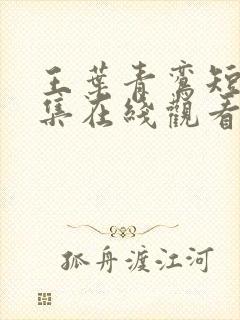 王葉青鸞短
集在綫觀看
孤舟渡江河